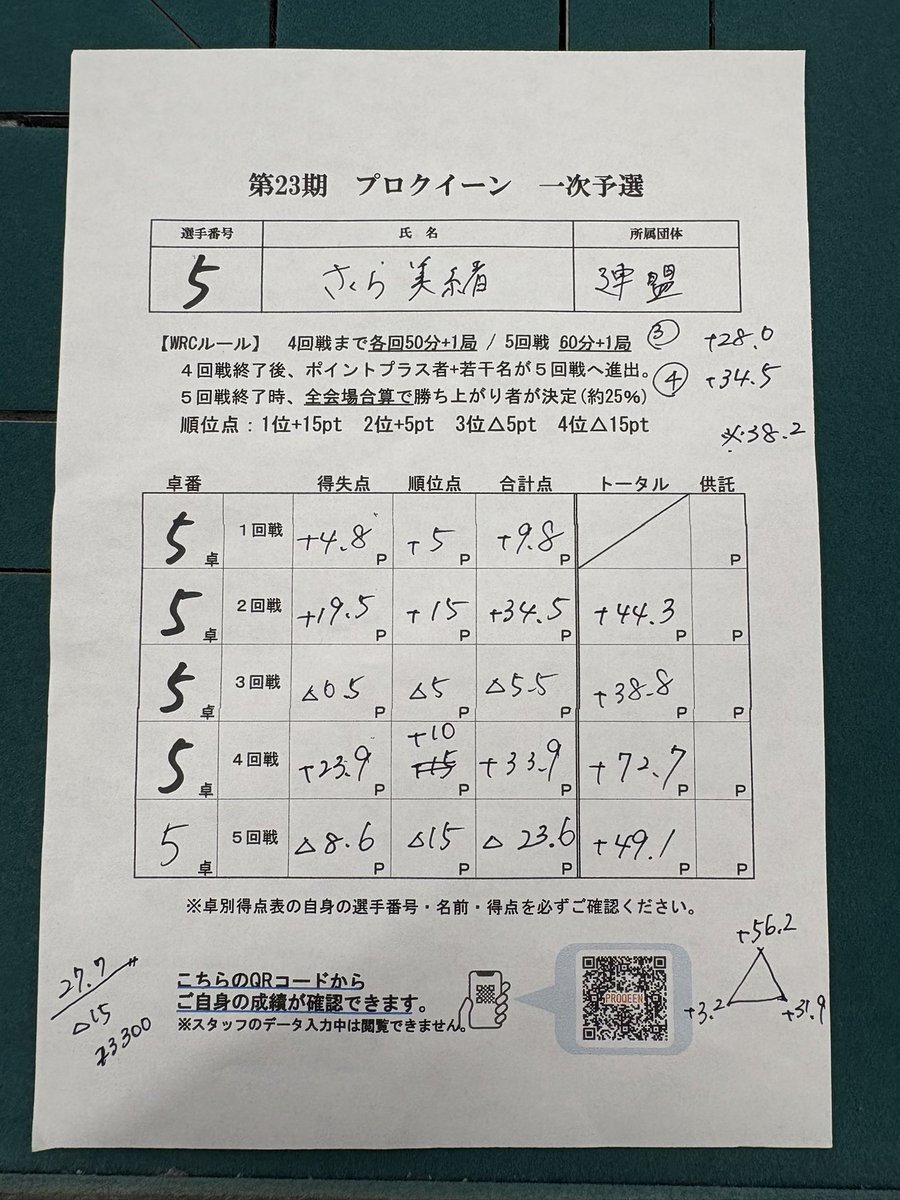 第23期 プロクイーン 一次予選
選手番号 氏 名 所属団体
5 さくら美緒 連盟
【WRCルール】 4回戦まで各回50分+1局 / 5回戦 60分+1局 ③ +28.0
4回戦終了後、ポイントプラス者+若干名が5回戦へ進出。 ④ +34.5
5回戦終了時、全会場合算で勝ち上がり者が決定(約25%)
順位点：1位+15pt 2位+5pt 3位△5pt 4位△15pt ※38.2
卓番 得失点 順位点 合計点 トータル 供託
5卓 1回戦 +4.8P +5P +9.8P P
5卓 2回戦 +19.5P +15P +34.5P +44.3P P
5卓 3回戦 △0.5P △5P △5.5P +38.8P P
+10
5卓 4回戦 +23.9P +15P +33.9P +72.7P P
5卓 5回戦 △8.6P △15P △23.6P +49.1P P
※卓別得点表の自身の選手番号・名前・得点を必ずご確認ください。
+56.2
+3.2 +31.9
27.7
△15
こちらのQRコードから
ご自身の成績が確認できます。
※スタッフのデータ入力中は閲覧できません。
PROQEEN